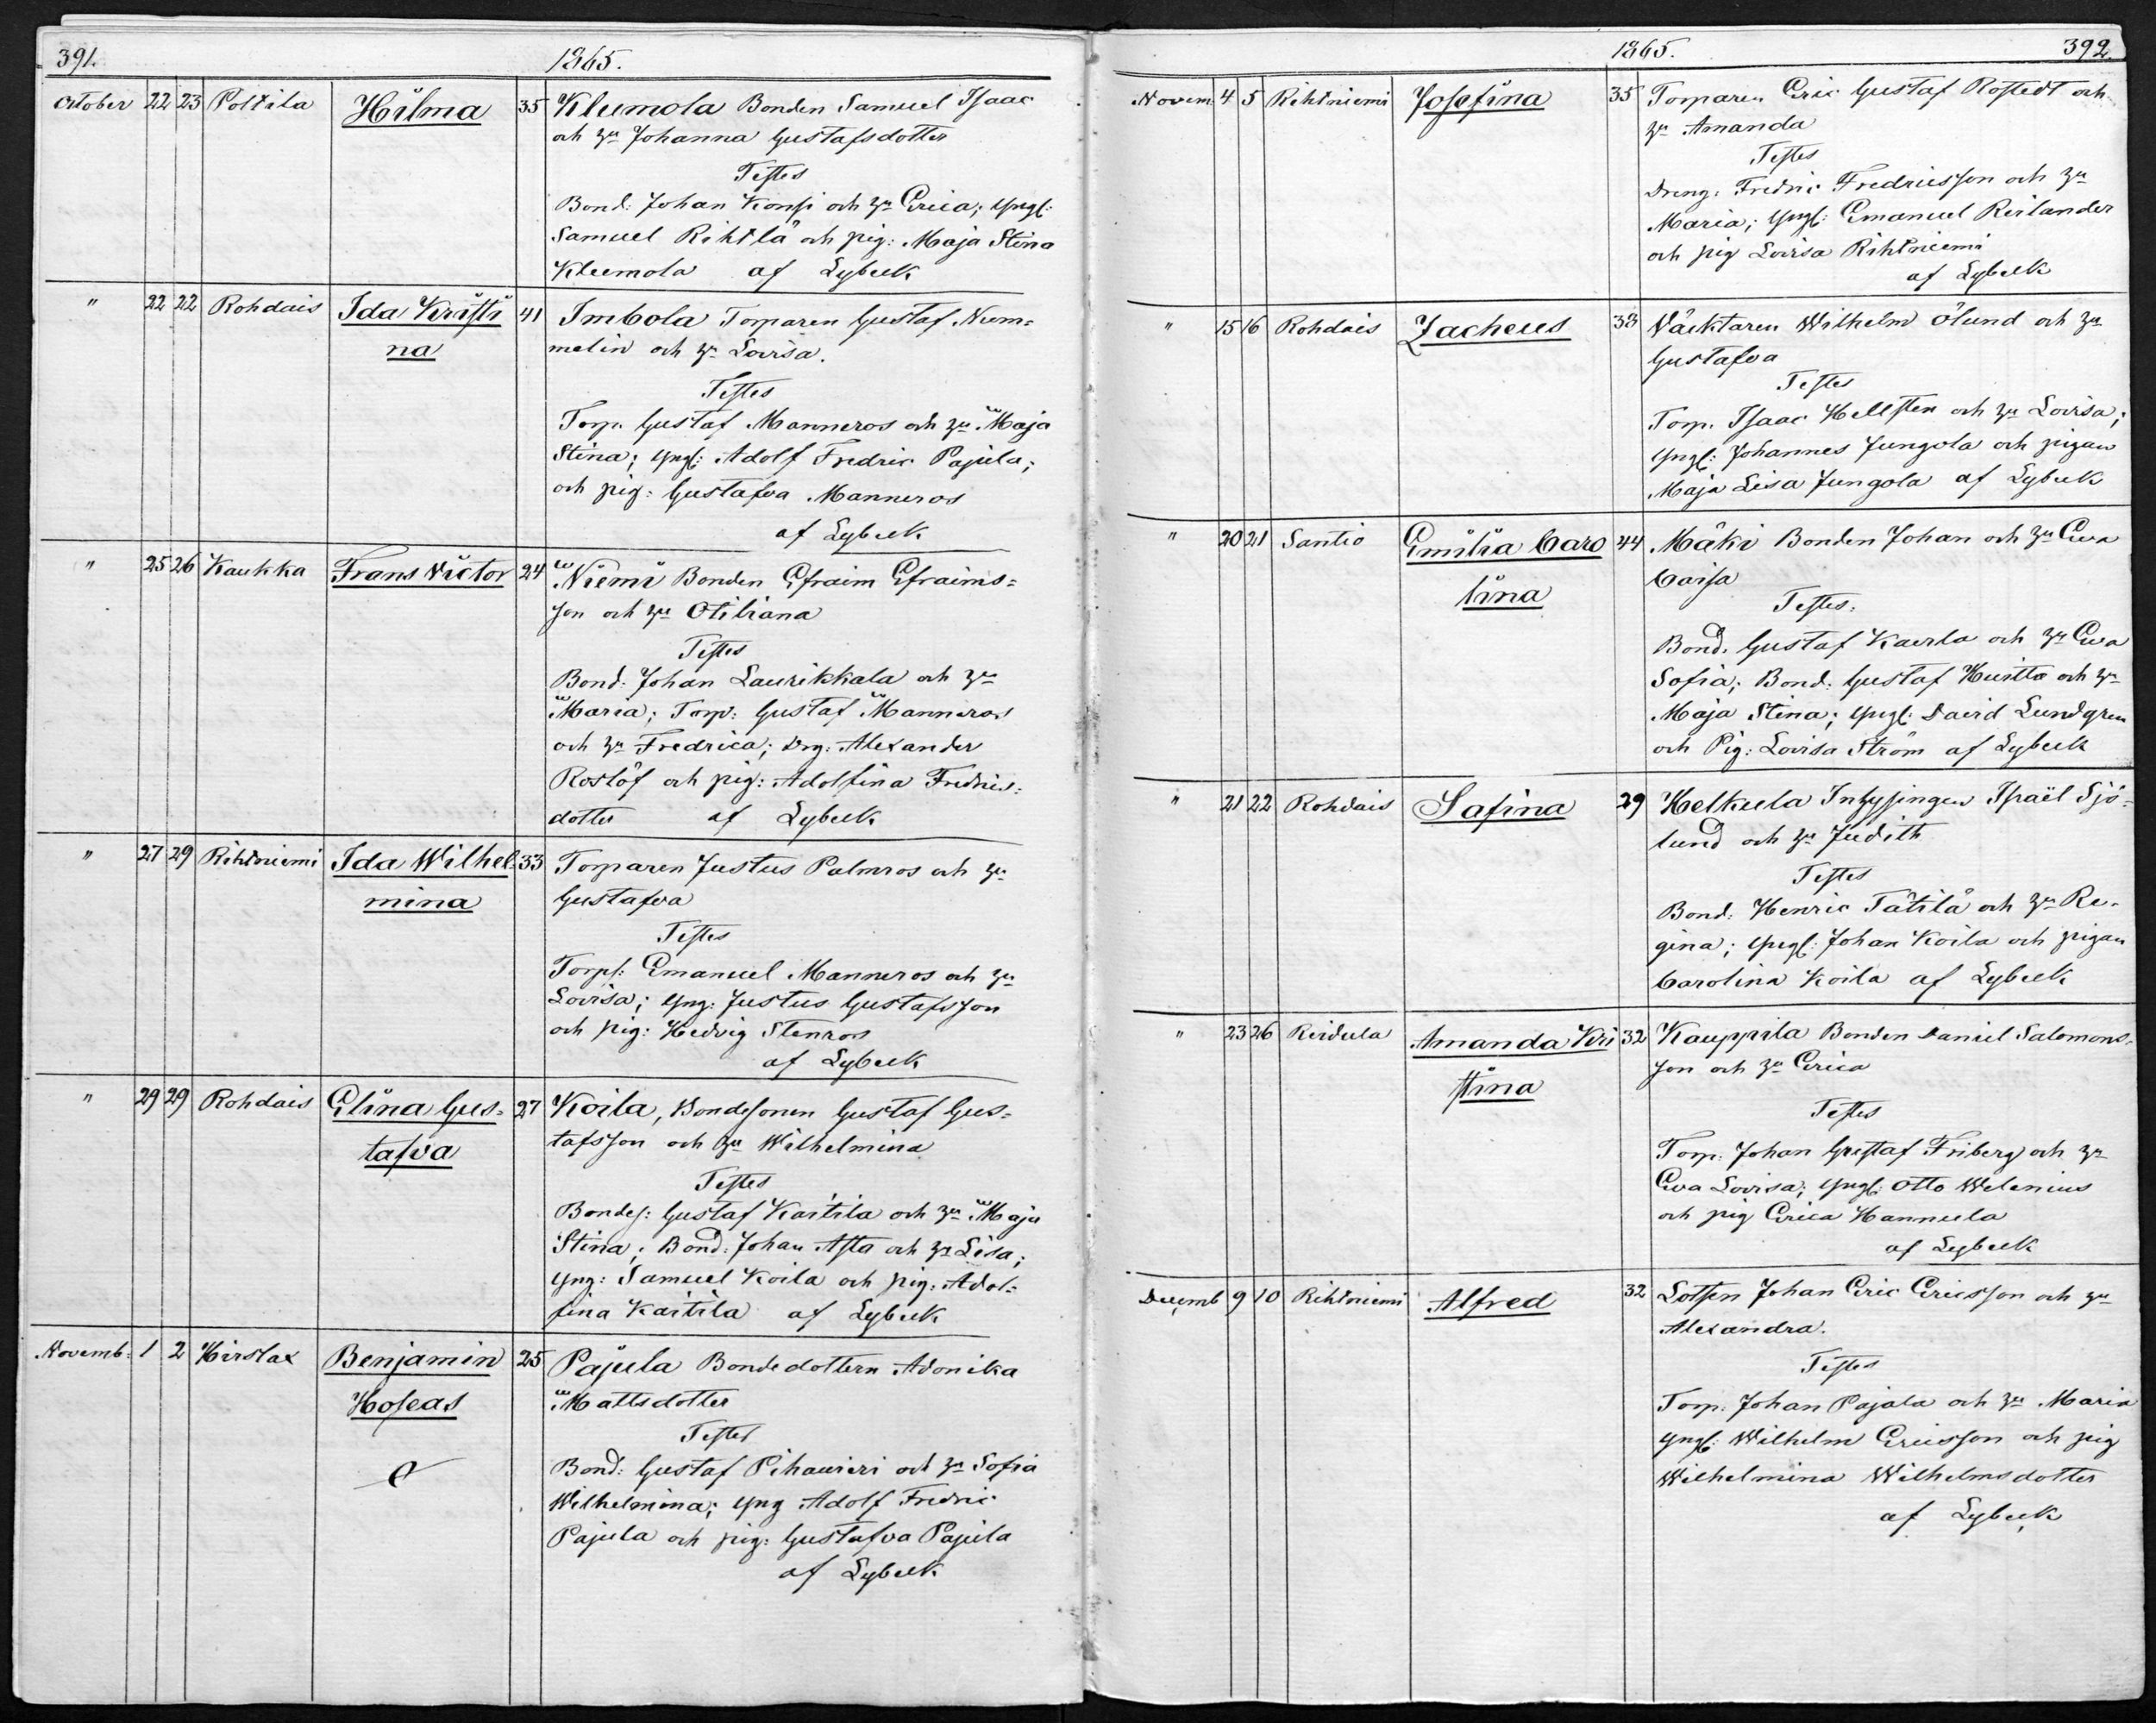 391.
1865.
October 22 23 Poltila Hilma 35 Kleemola Bonden Samuel Isaac
och hu Johanna Gustafsdotter
Testes
Bond: Johan Konsi och hu Erica; yngl:
Samuel Rihtlä och pig: Maja Stina
Kleemola af Lybeck
" 22 22 Rohdais Ida Kristi 41 Imbola Torparen Gustaf Num=
na melin och hu Lovisa.
Testes
Torp. Gustaf Manneros och hu Maja
Stina; yngl: Adolf Fredric Pajula;
och pig: Gustafva Manneros
af Lybeck
" 25 26 Kaukka Frans Victor 24 Niemi Bonden Efraim Efraims=
son och hu Otiliana
Testes
Bond: Johan Laurikkala och hu
Maria; Torp: Gustaf Manneros
och hu Fredrica; Drg: Alexander
Roslöf och pig: Adolfina Fredrics=
dotter af Lybeck
" 27 29 Rihtniemi Ida Wilhel- 33 Torparen Justus Palmros och hu
mina Gustafva
Testes
Torps: Emanuel Manneros och hu
Lovisa; yng: Justus Gustafsson
och pig: Hedvig Stenros
af Lybeck
" 29 29 Rohdais Elina Gus= 27 Koila, Bondesonen Gustaf Gus=
tafva tafsson och hu Wilhelmina
Testes
Bondes: Gustaf Kaitila och hu Maja
Stina; Bond: Johan Asta och hu Lisa;
yng: Samuel Koila och pig: Adol=
fina Kaitila af Lybeck
Novemb: 1 2 Hirslax Benjamin 25 Pajula Bondedottern Adonika
Hoseas Mattsdotter
Testes
Bond: Gustaf Pihavieri och hu Sofia
Wilhelmina; yng Adolf Fredric
Pajula och pig: Gustafva Pajula
af Lybeck
1865.
392.
Novem. 4 5 Rihtniemi Josefina 35 Torparen Eric Gustaf Rostedt och
hu Amanda
Testes
Dreng: Fredric Fredricsson och hu
Maria; yngl: Emanuel Reilander
och pig Lovisa Rihtniemi
af Lybeck
" 15 16 Rohdais Zacheus 38 Väcktaren Wilhelm Ölund och hu
Gustafva
Testes
Torp. Isaac Hellsten och hu Lovisa;
yngl: Johannes Jungola och pigan
Maja Lisa Jungola af Lybeck
" 20 21 Santio Emilia Caro 44 Mäki Bonden Johan och hu Eva
lina Caisa
Testes.
Bond. Gustaf Kaurla och hu Eva
Sofia; Bond: Gustaf Huitto och hu
Maja Stina; yngl: David Lundgren
och Pig: Lovisa Ström af Lybeck
" 21 22 Rohdais Safina 29 Helkula Inhysingen Israël Sjö=
lund och hu Judith
Testes
Bond: Henric Tätilä och hu Re-
gina; yngl: Johan Koila och pigan
Carolina Koila af Lybeck
" 23 26 Reidula Amanda Kri 32 Kauppila Bonden Daniel Salomons-
stina son och hu Erica
Testes
Torp: Johan Gustaf Friberg och hu
Eva Lovisa; yngl: Otto Welenius
och pig Erica Hannula
af Lybeck
Decemb 9 10 Rihtniemi Alfred 32 Lotsen Johan Eric Ericsson och hu
Alexandra.
Testes
Torp. Johan Pajala och hu Maria
yngl: Wilhelm Ericsson och pig
Wilhelmina Wilhelmsdotter
af Lybeck